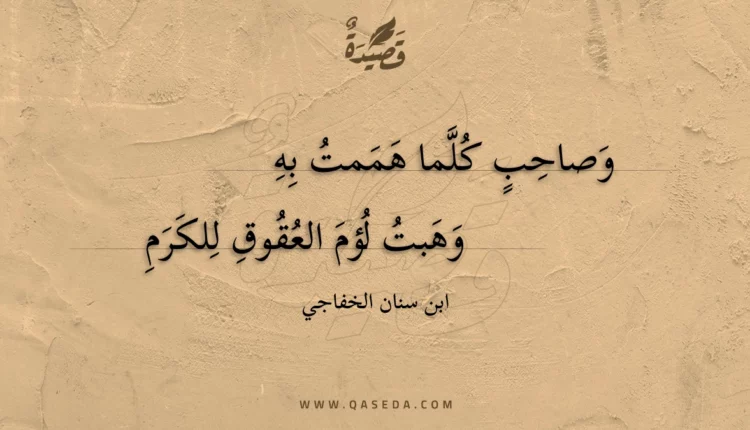 قَصِيْدَةٌ
وَصاحِبٍ كُلَّما هَمَمتُ بِهِ
وَهَبتُ لُؤمَ العُقُوقِ لِلكَرَمِ
ابن سنان الخفاجي
WWW.QASEDA.COM